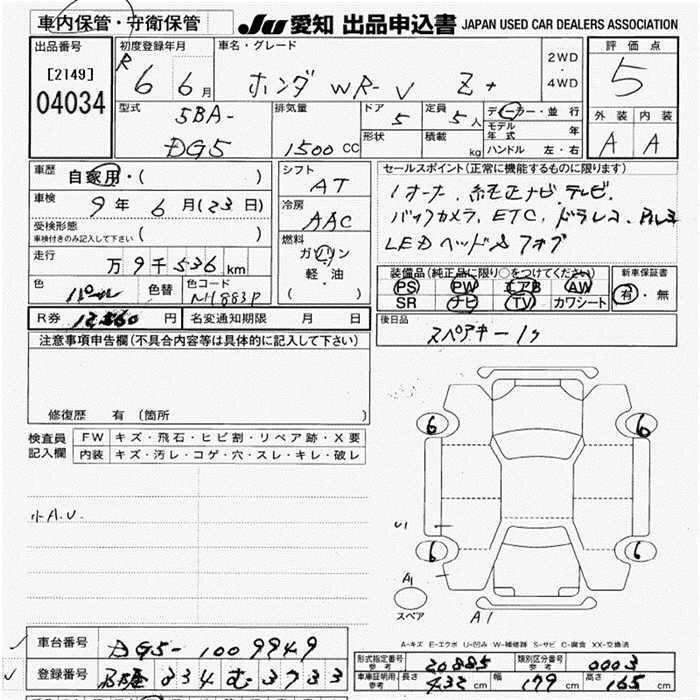 車内保管・守衛保管 JU 愛知 出品申込書 JAPAN USED CAR DEALERS ASSOCIATION
出品番号 初度登録年月 車名・グレード 評価点
[2149] R 6 6月 ホンダ WR-V Z+ 2WD・4WD 5
04034 型式 5BA- 排気量 ドア 5 定員 5人 ディーラー・並行 外装 内装
DG5 1500 CC 形状 積載 kg モデル年式 年 A A
ハンドル 左・右
車歴 自家用・( ) シフト AT セールスポイント(正常に機能するものに限ります)
車検 9年 6月(23日) 冷房 AAC 1オーナー、純正ナビ、テレビ、
受検形態 車検付きのみ記入して下さい ( ) 燃料 バックカメラ、ETC、ドラレコ、アルミ
走行 万9千536km ガソリン LEDヘッド&フォグ
軽・油 装備品(純正品に限り○をつけてください) 新車保証書
色 パール 色替 色コード NH883P ( ) PS PW エアB AW 有・無
SR ナビ TV カワシート
R券 12,560 円 名変通知期限 月 日 後日品
注意事項申告欄(不具合内容等は具体的に記入して下さい) スペアキー1ヶ
修復歴 有(箇所
検査員 FW キズ・飛石・ヒビ割・リペア跡・X要
記入欄 内装 キズ・汚レ・コゲ・穴・スレ・キレ・破レ
6 6
小A.U.
U1
6 6
A1
スペア A1
A-キズ E-エクボ U-凹み W-補修器 S-サビ C-腐食 XX-交換済
車台番号 DG5-1009949
型式指定番号 参考 20885 類別区分番号 参考 0003
登録番号 334 む 3733
車庫証明用 参考 長さ 432 cm 幅 179 cm 高さ 165 cm